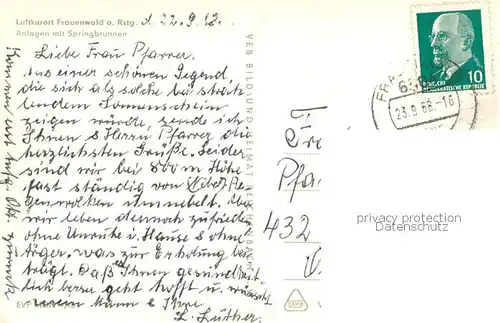 Luftkurort Frauenwald a. Rstg.
Anlagen mit Springbrunnen
d. 22.9.68.
Liebe Frau Pfarrer.
Aus einer schönen Gegend,
die sich als solche bei strah
lendem Sonnenschein
zeigen würde, sende ich
Ihnen & Herrn Pfarrer die
herzlichsten Grüße. Leider
sind wir bei 800 m Höhe
fast ständig von Nebel & Re
genwolken umnebelt. Aber
wir leben dennoch zufrieden
ohne Unruhe i. Hause & ohne
Ärger, was zur Erholung bei
trägt. Daß Ihnen gesundheit
lich besser geht hofft u. wünscht
mein Mann & Ihre
L. Luther.
Kommen erst Anfg. Okt. zurück
EVP
VEB BILD UND HEIMAT REICHENBACH
432
DEUTSCHE
DEMOKRATISCHE REPUBLIK
10
23.9.68-16
privacy protection
Datenschutz